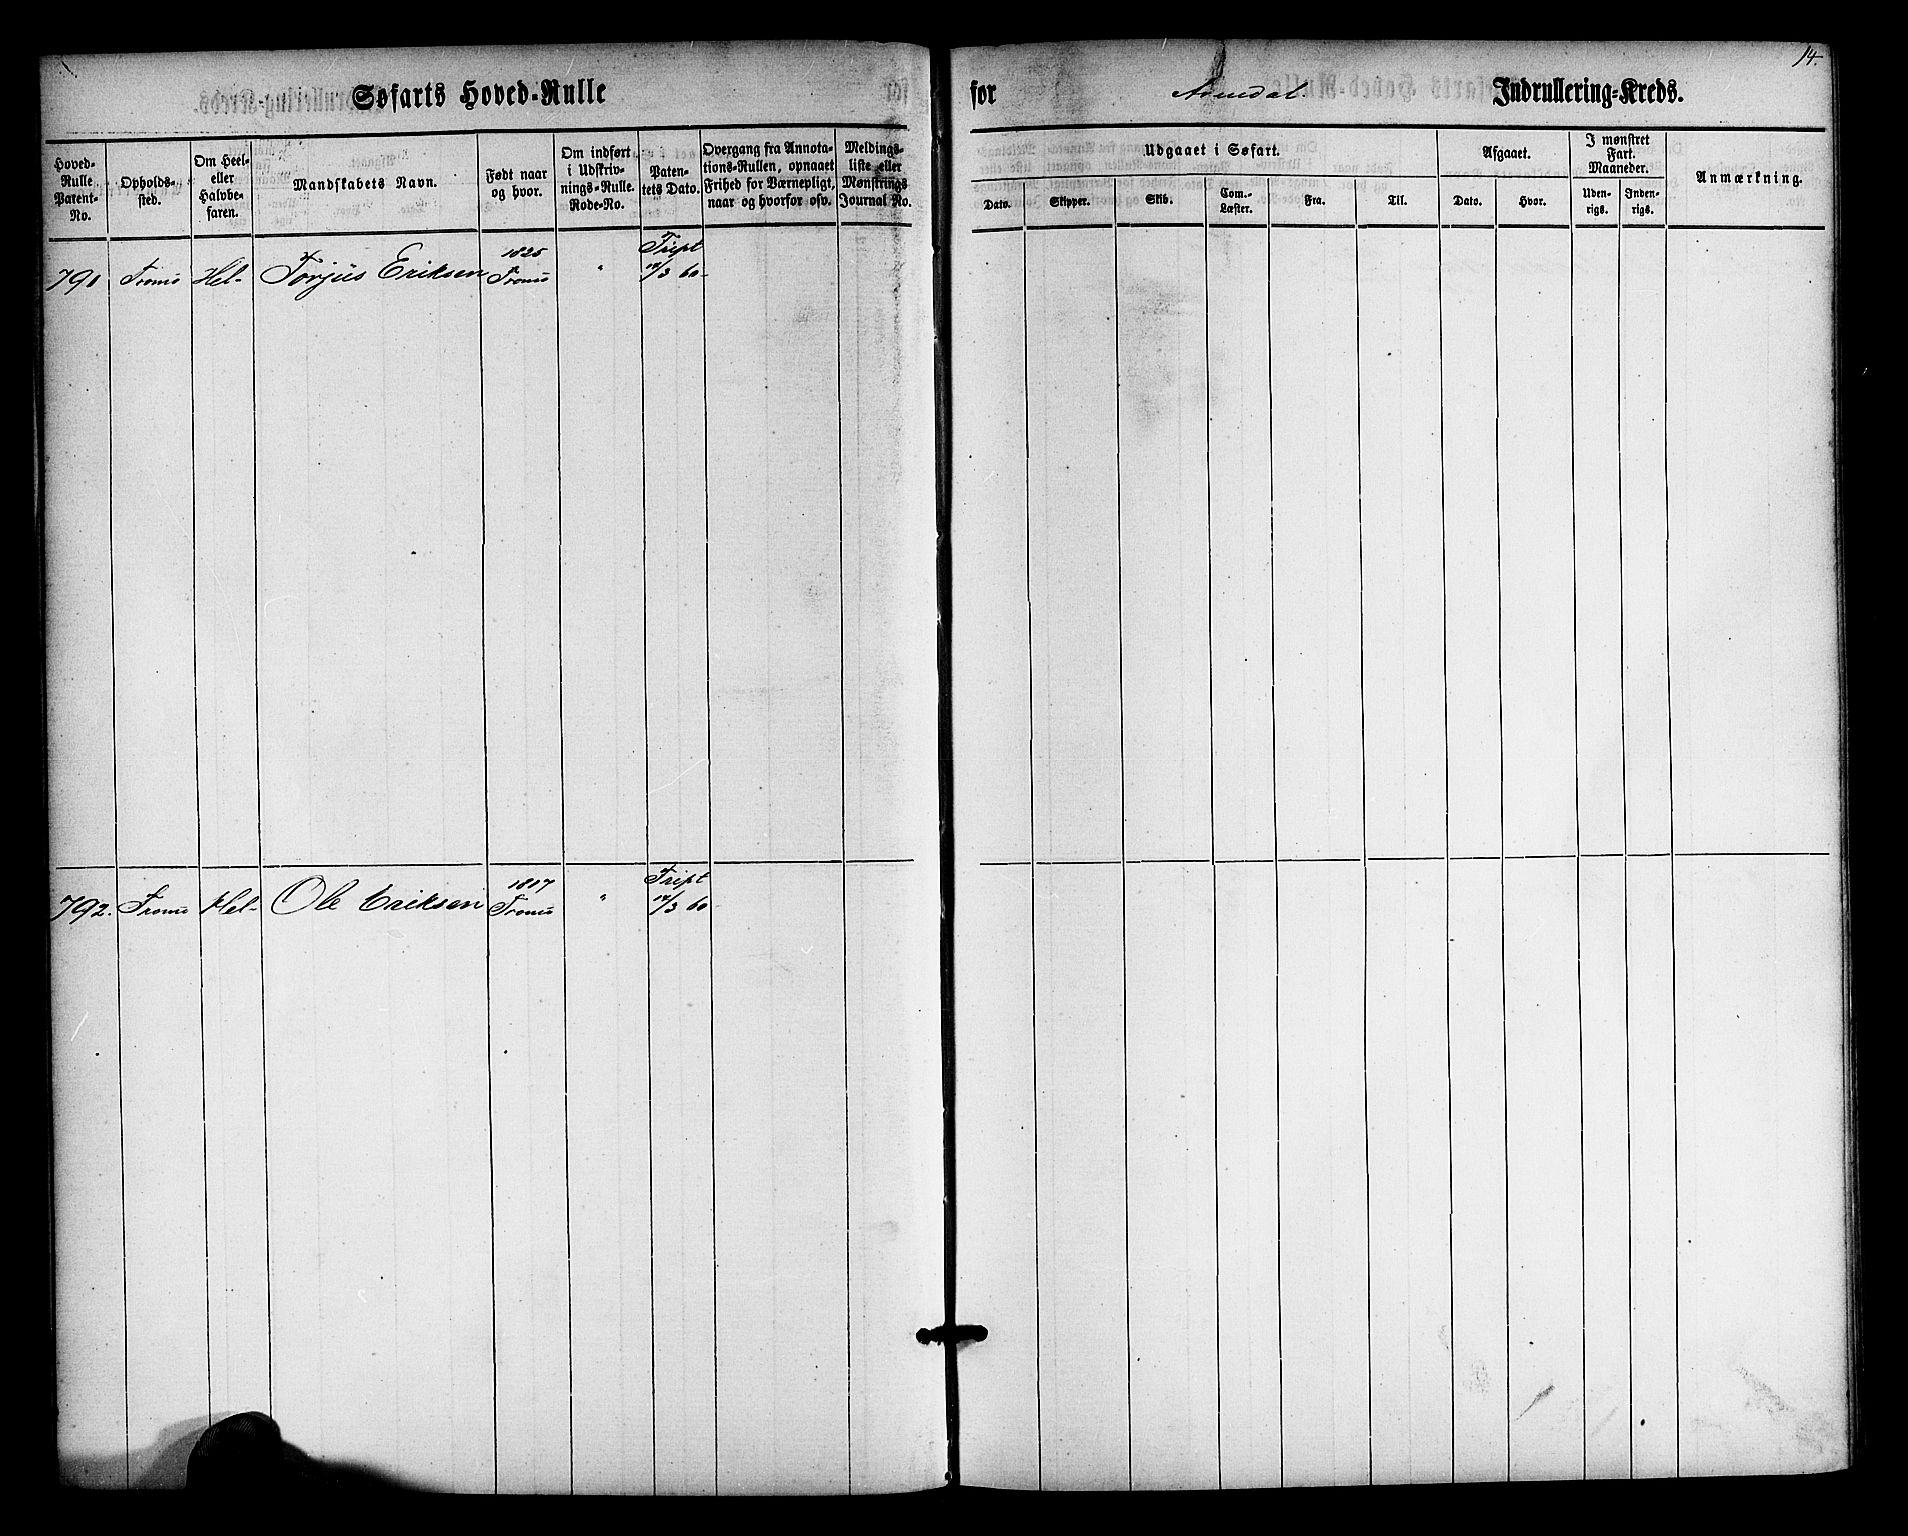 14.
Søfarts Hoved-Rulle for Arendal Indrullering-Kreds.
Hoved-
Rulle
Patent-
No.
Opholds-
sted.
Om Heel-
eller
Halvbe-
faren.
Mandskabets Navn.
Født naar
og hvor.
Om indført
i Udskriv-
nings-Rulle.
Rode-No.
Paten-
tets Dato.
Overgang fra Annota-
tions-Rullen, opnaaet
Frihed for Værnepligt,
naar og hvorfor osv.
Meldings-
liste eller
Mønstrings
Journal No.
Udgaaet i Søfart.
Dato.
Skipper.
Skib.
Com.-
Læster.
Fra.
Til.
Afgaaet.
Dato.
Hvor.
I mønstret
Fart.
Maaneder.
Uden-
rigs.
Inden-
rigs.
Anmærkning.
1825
791 Tromø Hel- Torjus Eriksen Tromø " 12/3 60-
1817
792. Tromø Hel- Ole Eriksen Tromø " 12/3 60-